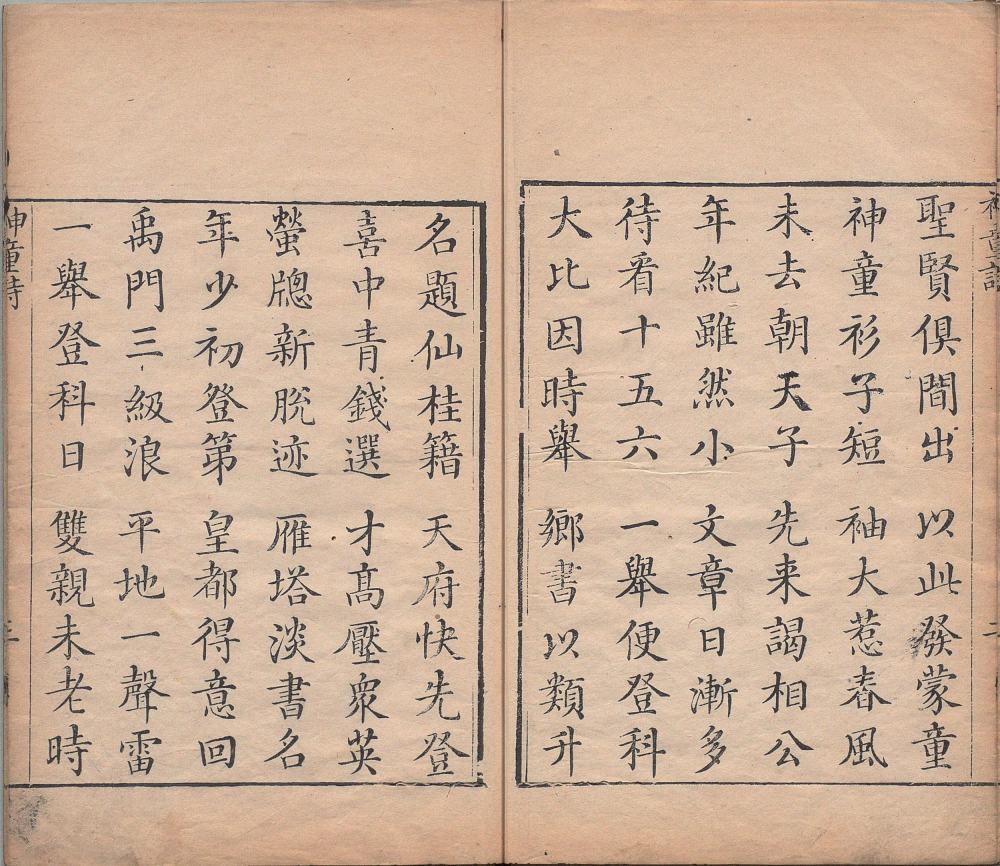 神童詩
聖賢俱間出 以此發蒙童
神童衫子短 袖大惹春風
未去朝天子 先来謁相公
年紀雖然小 文章日漸多
待看十五六 一舉便登科
大比因時舉 鄉書以類升
名題仙桂籍 天府快先登
喜中青錢選 才髙壓衆英
螢牕新脫迹 雁塔淡書名
年少初登第 皇都得意回
禹門三級浪 平地一聲雷
一舉登科日 雙親未老時
神童詩